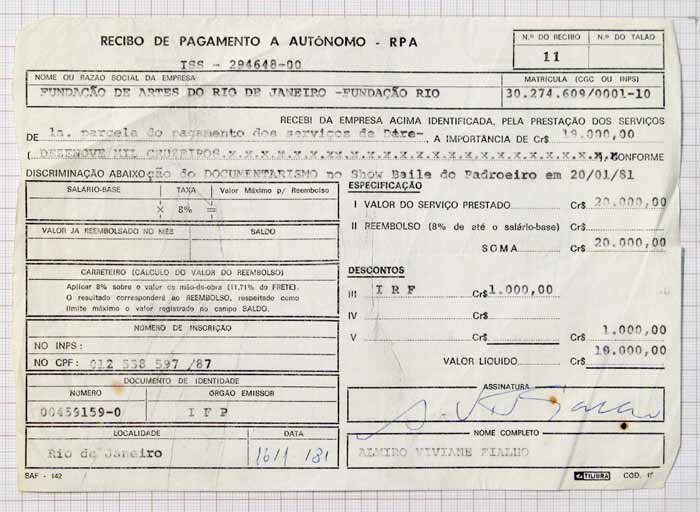 RECIBO DE PAGAMENTO A AUTÔNOMO - RPA
N.º DO RECIBO
N.º DO TALÃO
11
ISS - 294648-00
NOME OU RAZÃO SOCIAL DA EMPRESA
MATRÍCULA (CGC OU INPS)
FUNDAÇÃO DE ARTES DO RIO DE JANEIRO -FUNDAÇÃO RIO
30.274.609/0001-10
RECEBI DA EMPRESA ACIMA IDENTIFICADA, PELA PRESTAÇÃO DOS SERVIÇOS
DE 1a. parcela do pagamento dos serviços de Dire-, A IMPORTÂNCIA DE Cr$ 19.000,00
( DEZENOVE MIL CRUZEIROS.x.x.x.x.x.x.x.x.x.x.x.x.x.x.x.x.x.x.x.x.x.x), CONFORME
DISCRIMINAÇÃO ABAIXO ção do DOCUMENTARISMO no Show Baile do Padroeiro em 20/01/81
SALÁRIO-BASE TAXA Valor Máximo p/ Reembolso
× 8% =
VALOR JÁ REEMBOLSADO NO MÊS SALDO
CARRETEIRO (CÁLCULO DO VALOR DO REEMBOLSO)
Aplicar 8% sobre o valor da mão-de-obra (11,71% do FRETE).
O resultado corresponderá ao REEMBOLSO, respeitado como
limite máximo o valor registrado no campo SALDO.
NÚMERO DE INSCRIÇÃO
NO INPS:
NO CPF: 012 538 597 /87
DOCUMENTO DE IDENTIDADE
NÚMERO ÓRGÃO EMISSOR
00459159-0 I F P
LOCALIDADE DATA
Rio de Janeiro 16/1 /81
SAF - 142
ESPECIFICAÇÃO
I VALOR DO SERVIÇO PRESTADO Cr$ 20.000,00
II REEMBOLSO (8% de até o salário-base) Cr$
SOMA Cr$ 20.000,00
DESCONTOS
III I R F Cr$ 1.000,00
IV Cr$
V Cr$ 1.000,00
VALOR LÍQUIDO Cr$ 19.000,00
ASSINATURA
NOME COMPLETO
ALMIRO VIVIANE FIALHO
TILIBRA CÓD.